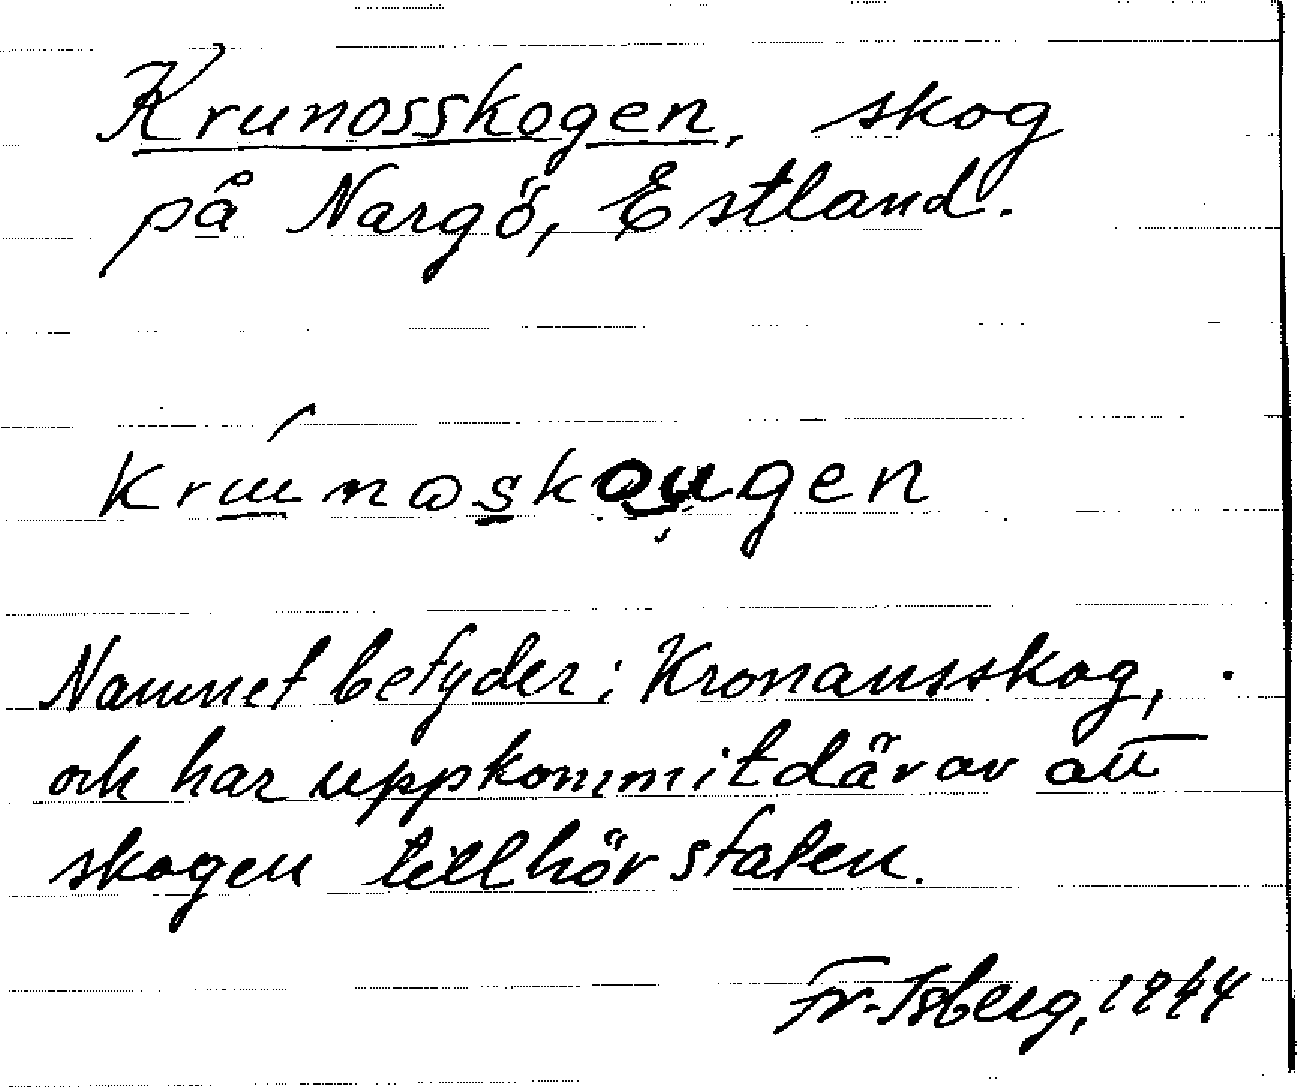 Krunosskogen, skog
på Nargö, Estland.
Krúnɷskougen
Namnet betyder: Kronansskog,
och har uppkommit därav att
skogen tillhör staten.
Fr. Isberg, 1944